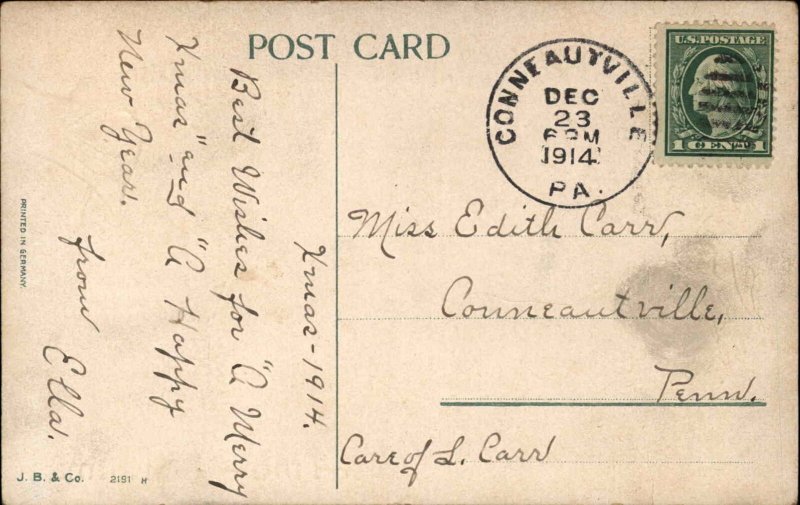 POST CARD
Xmas - 1914.
Best Wishes for "A Merry
Xmas" and "A Happy
New Year.
from Ella.
PRINTED IN GERMANY.
J. B. & Co. 2191 H
CONNEAUTVILLE
DEC
23
6 PM
1914
PA.
U.S. POSTAGE
1 CENT 1
Miss Edith Carr,
Conneautville,
Penn.
Care of L. Carr